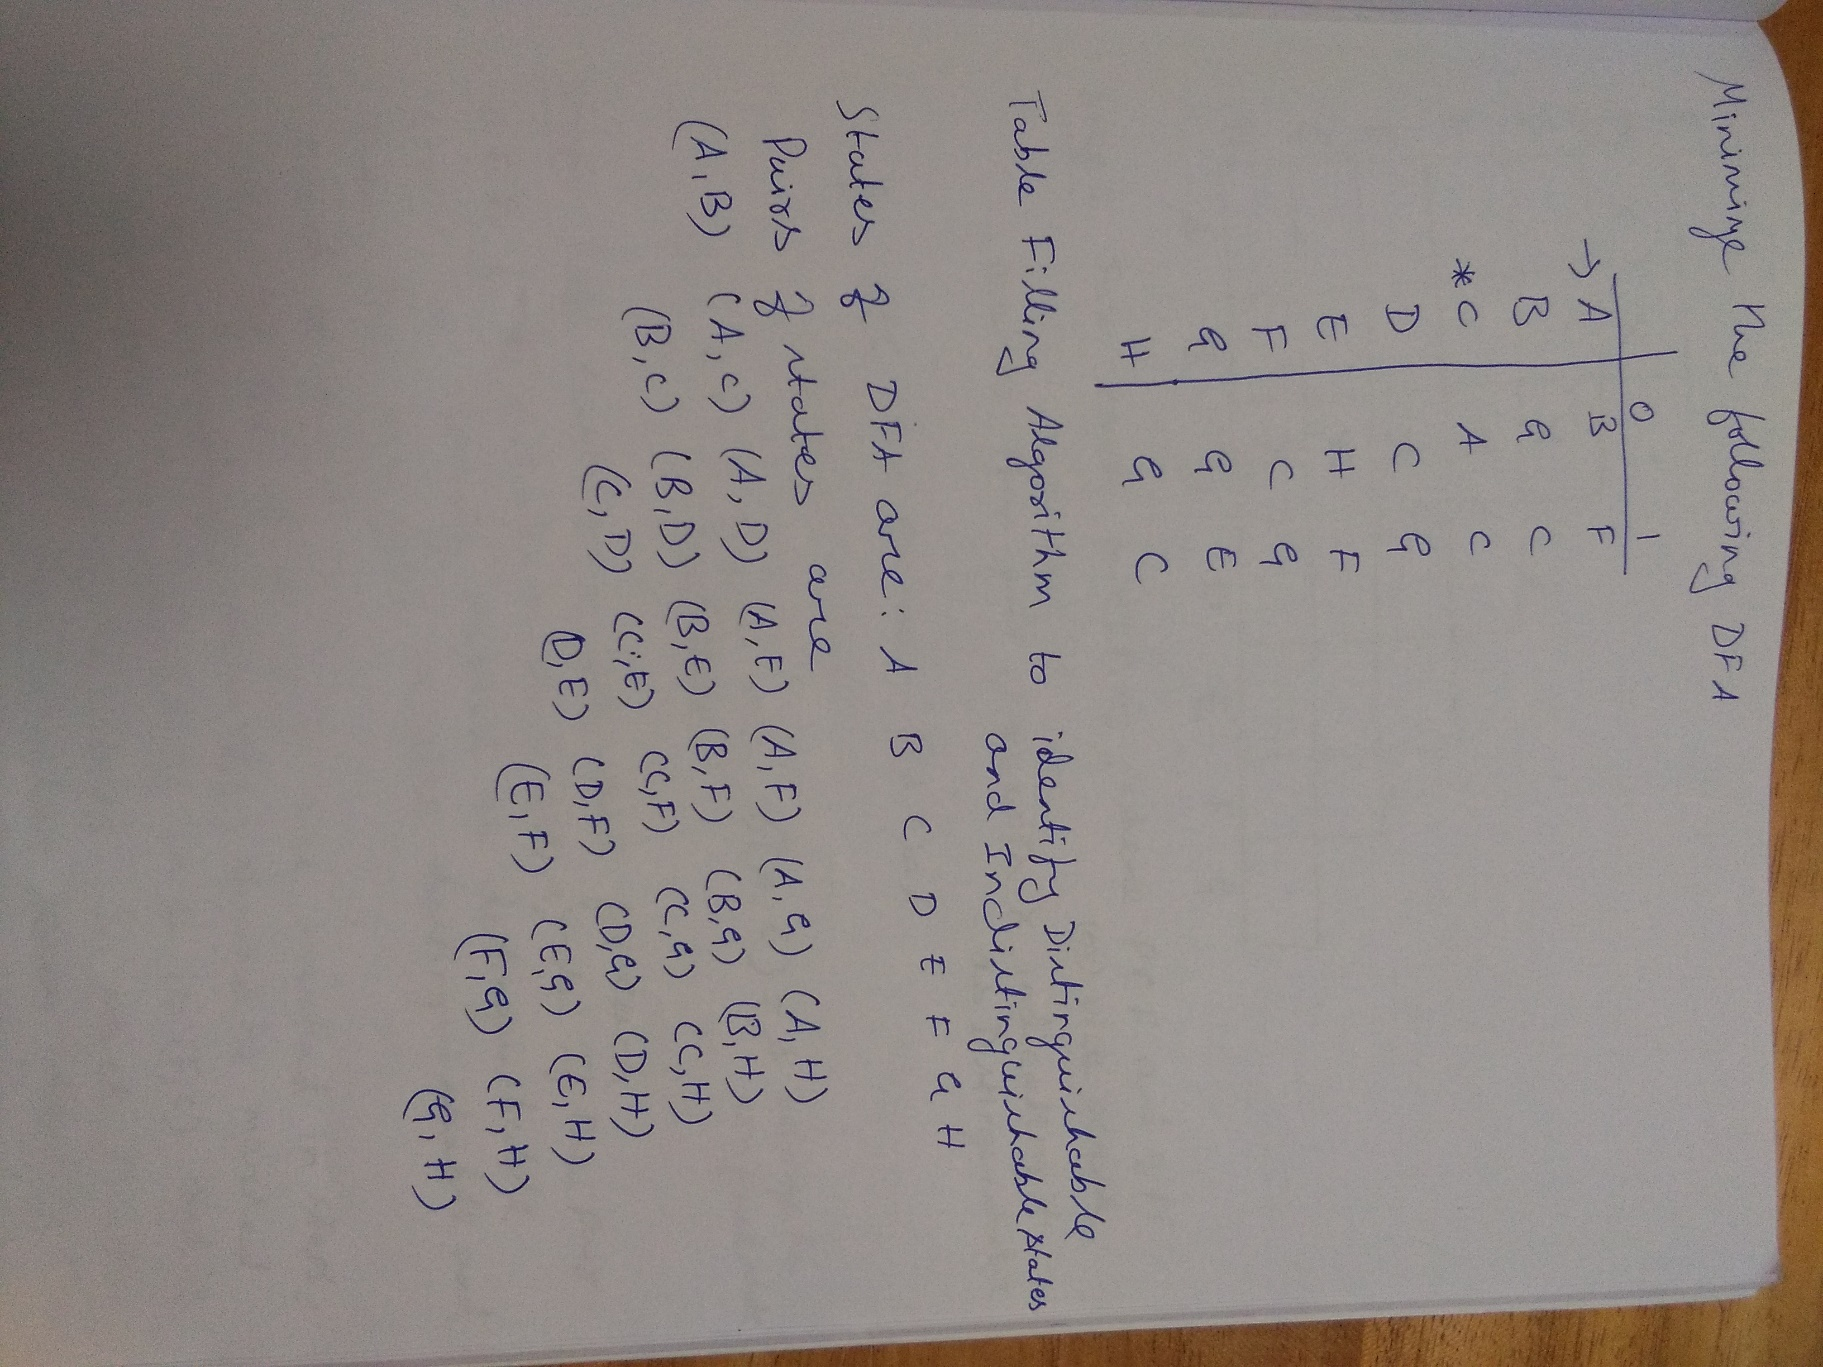 Minimize the following DFA
0 1
→A B F
B G C
*C A C
D C G
E H F
F C G
G G E
H G C
Table Filling Algorithm to identify Distinguishable
and Indistinguishable states
States of DFA are: A B C D E F G H
Pairs of states are
(A,B) (A,C) (A,D) (A,E) (A,F) (A,G) (A,H)
(B,C) (B,D) (B,E) (B,F) (B,G) (B,H)
(C,D) (C,E) (C,F) (C,G) (C,H)
(D,E) (D,F) (D,G) (D,H)
(E,F) (E,G) (E,H)
(F,G) (F,H)
(G,H)